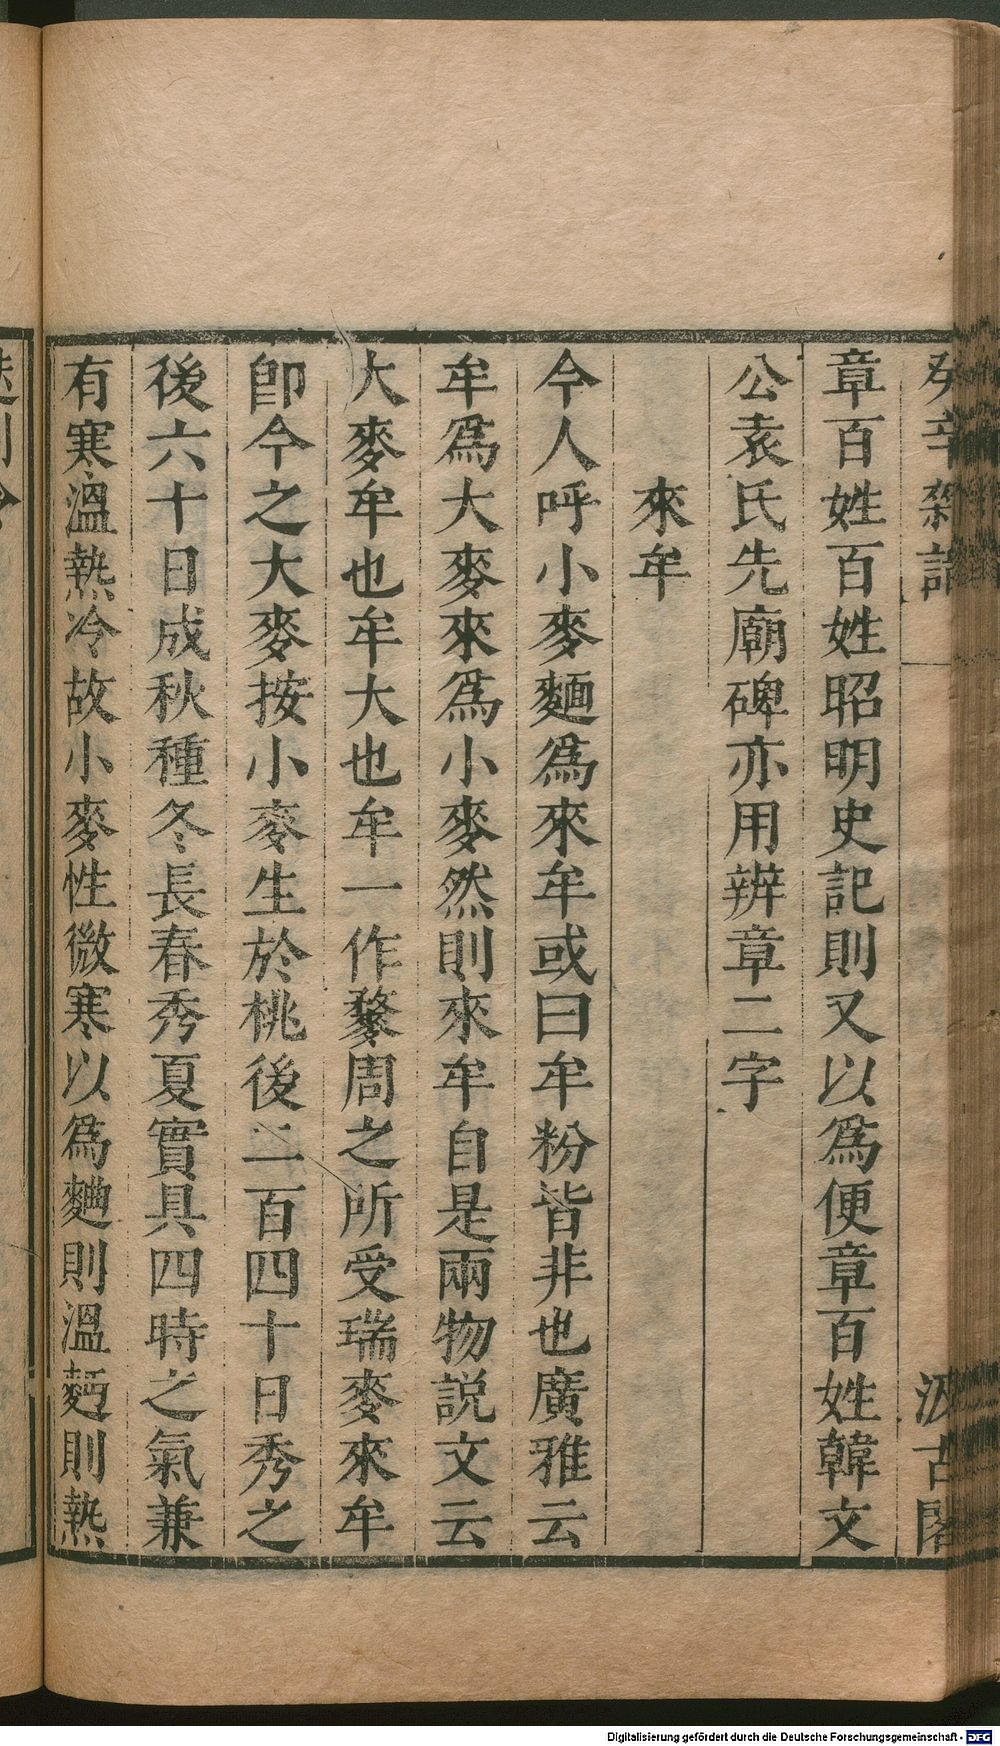 癸辛雜識
汲古閣
章百姓百姓昭明史記則又以爲便章百姓韓文
公袁氏先廟碑亦用辨章二字
來牟
今人呼小麥麵爲來牟或曰牟粉皆非也廣雅云
牟爲大麥來爲小麥然則來牟自是兩物說文云
大麥牟也牟大也牟一作䴦周之所受瑞麥來牟
卽今之大麥按小麥生於桃後二百四十日秀之
後六十日成秋種冬長春秀夏實具四時之氣兼
有寒溫熱冷故小麥性微寒以爲麯則溫麪則熱
Digitalisierung gefördert durch die Deutsche Forschungsgemeinschaft - DFG